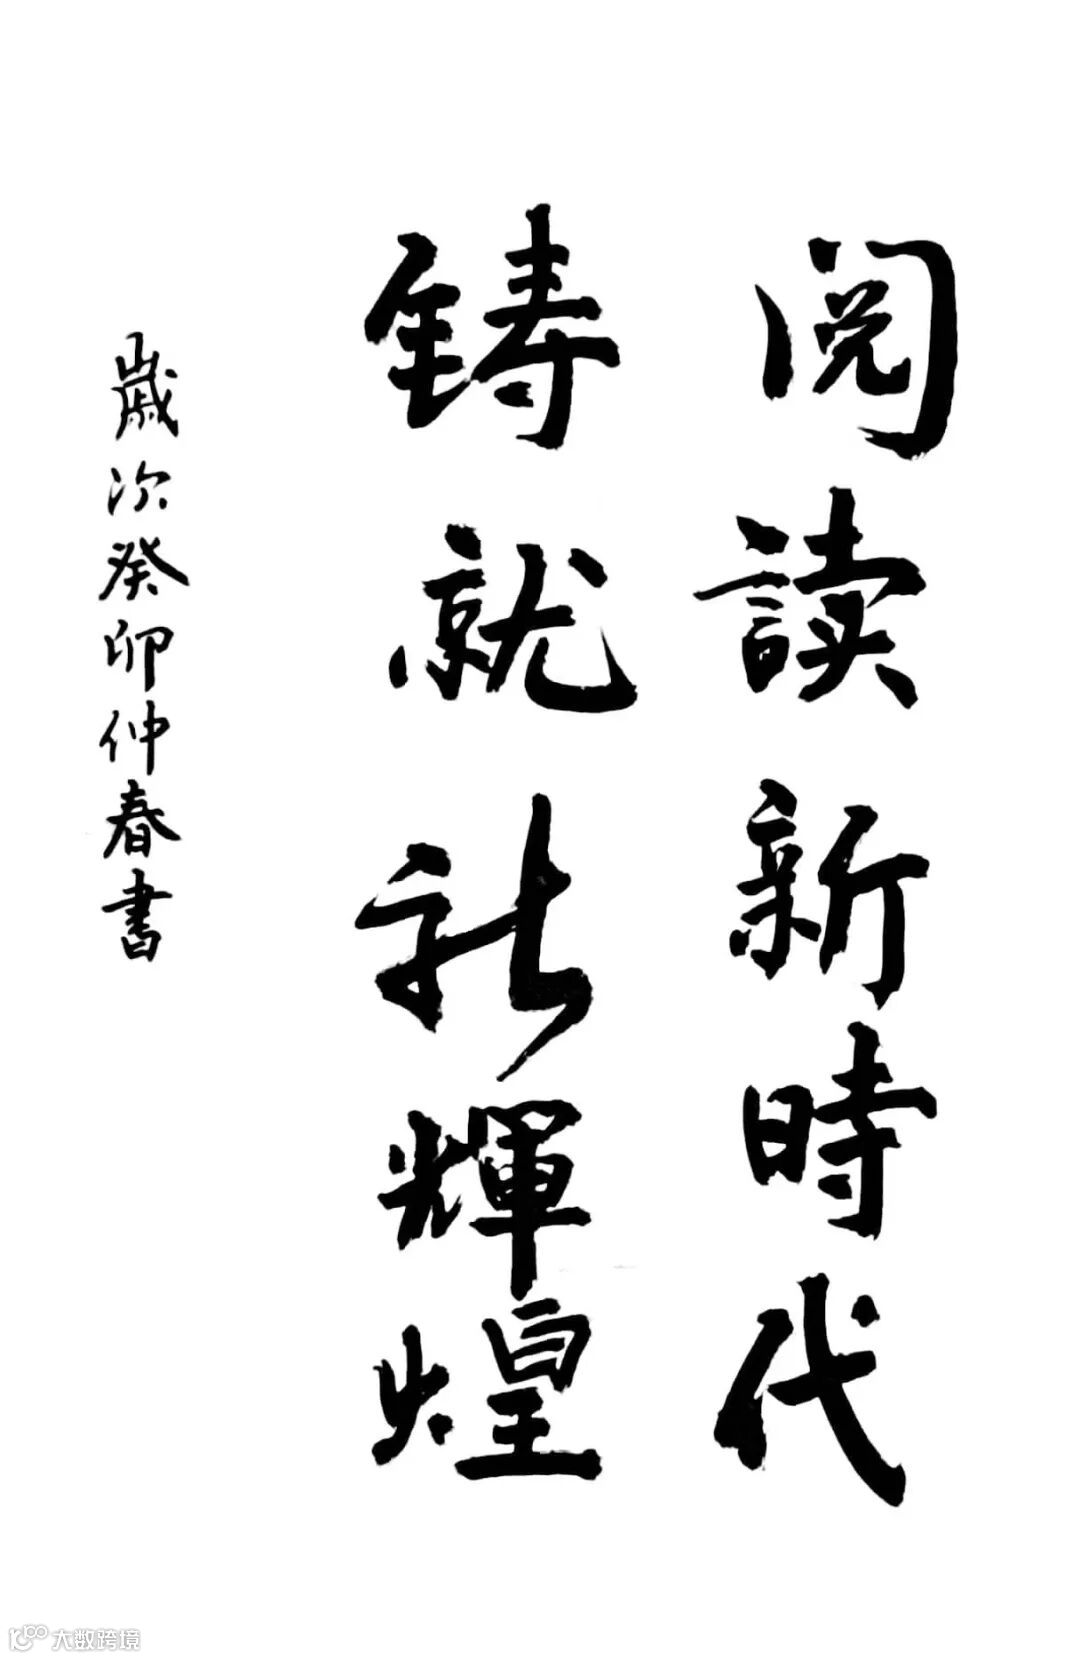 阅读新時代
铸就新輝煌
歲次癸卯仲春書
大数跨境